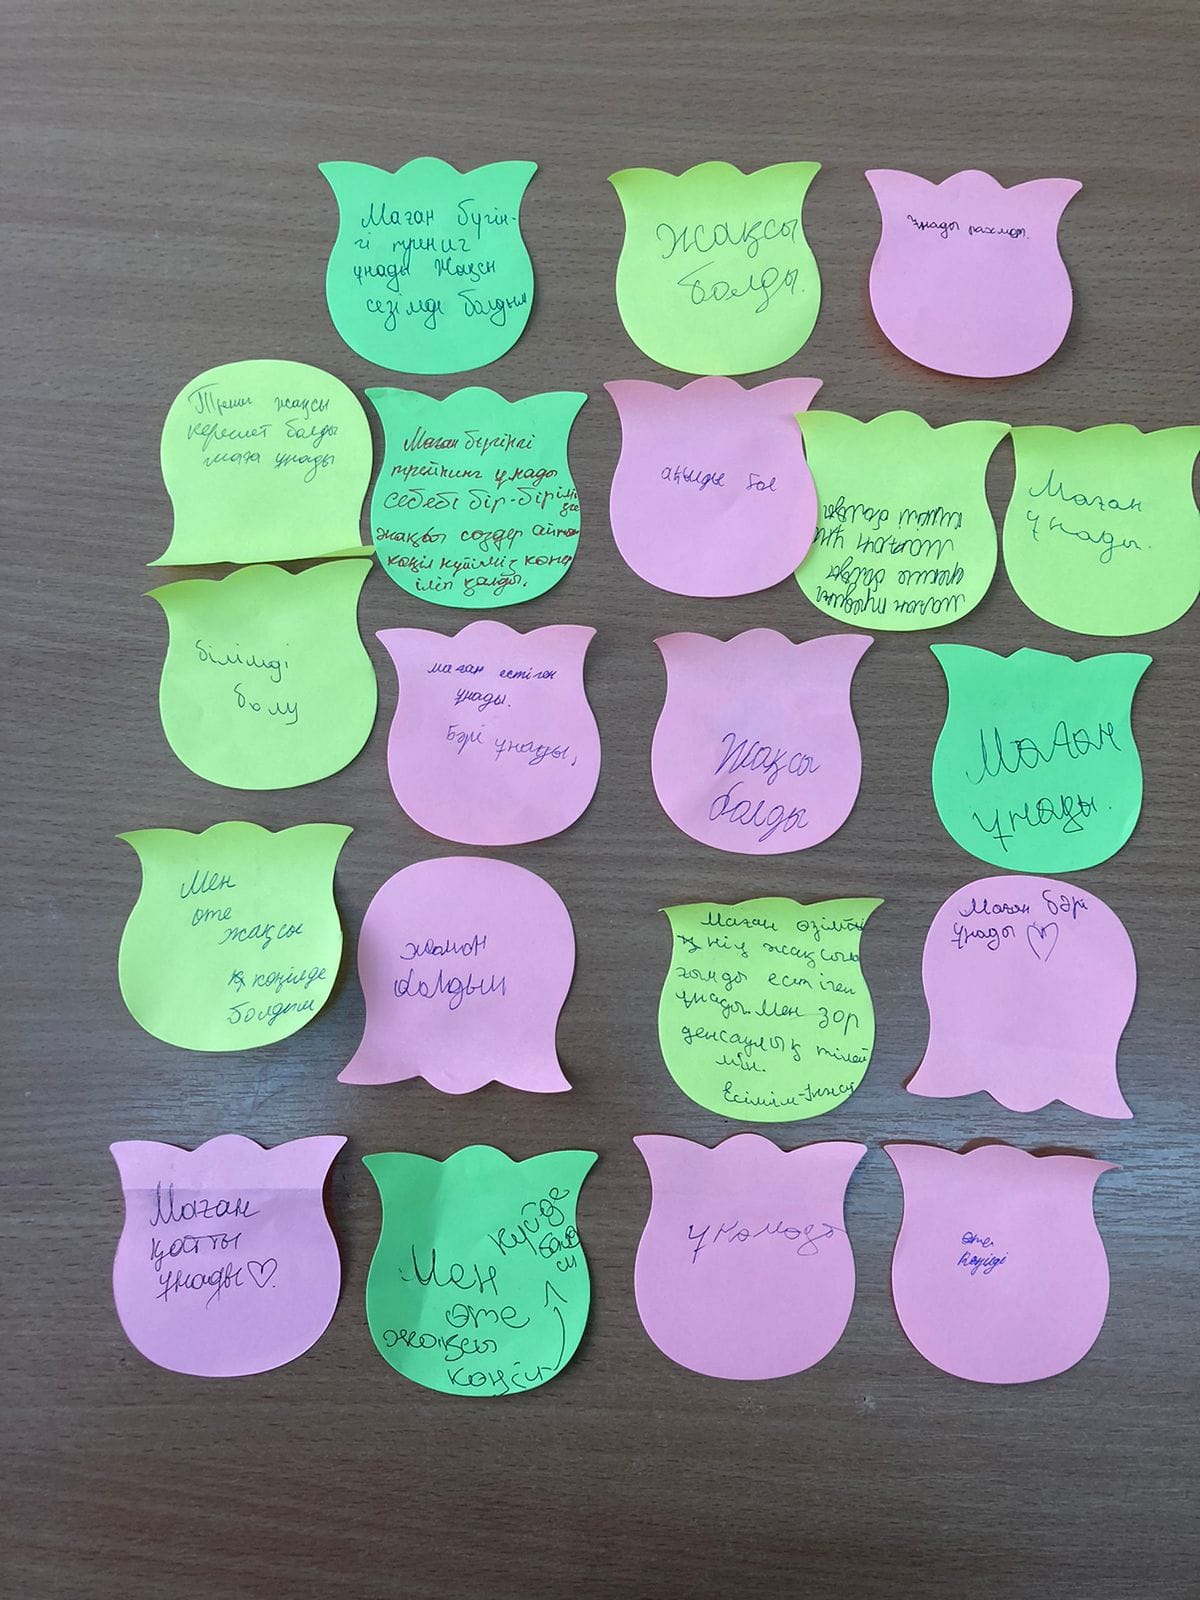 Маған бүгін-
гі
ұнады Жақсы
сезімде болдым
Жақсы
болды.
Ұнады рахмет.
жақсы
керемет болды
маға ұнады
Маған бүгінгі
трейнинг ұнады
себебі бір-біріміз
ге
жақсы сөздер айтып
көңіл күйіміз көте
іліп қалды.
ақылды бол
маған
болды
Маған ұн
болды
Маған
ұнады.
білімді
болу
маған естіген
ұнады.
Бәрі ұнады,
Жақсы
болды
Маған
ұнады.
Мен
өте
жақсы
көңілде
болдым
жаман
болдым
Маған өзімнің
жақсы
естіген
ұнады. Мен зор
денсаулық тілей
мін.
Есімім-
Маған бәрі
ұнады ♡
Маған
қатты
ұнады ♡.
Мен
өте
жақсы
көңіл
күйде
ұнамады
өте
көңілді